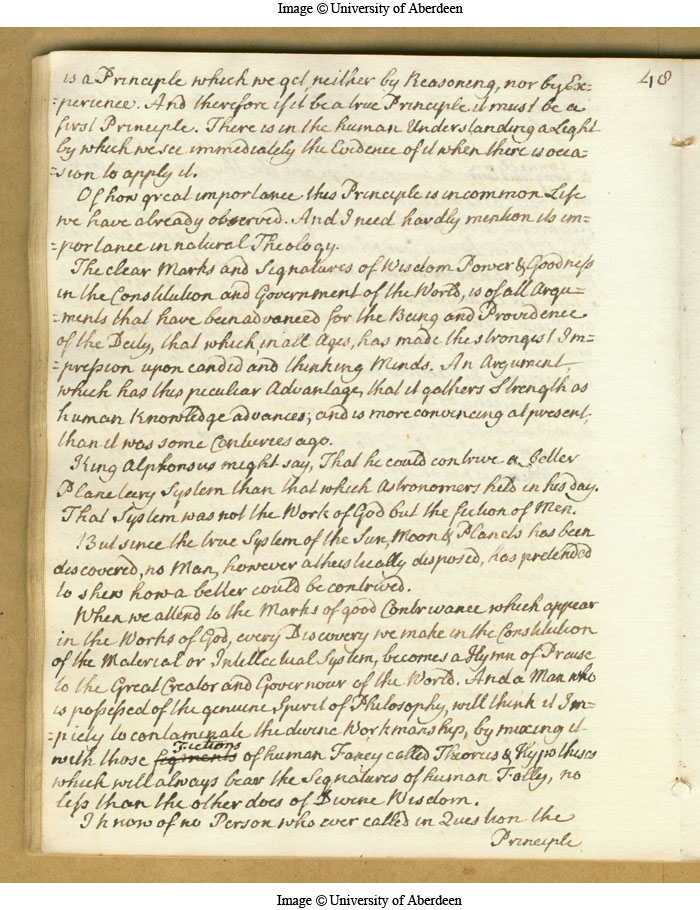 Image © University of Aberdeen
48
is a Principle which we get, neither by Reasoning, nor by Ex=
=perience. And therefore if it be a true Principle it must be a
first Principle. There is in the human Understanding a Light
by which we see immediately the Evidence of it when there is occa=
=sion to apply it.
Of how great importance this Principle is in common Life
we have already observed. And I need hardly mention its im=
=portance in natural Theology.
The clear Marks and Signatures of Wisdom Power & Goodness
in the Constitution and Government of the World, is of all Argu=
=ments that have been advanced for the Being and Providence
of the Deity, that which, in all Ages, has made the strongest Im=
=pression upon candid and thinking Minds. An Argument,
which has this peculiar Advantage, that it gathers Strength as
human Knowledge advances, and is more convincing at present,
than it was some Centuries ago.
King Alphonsus might say, That he could contrive a better
Planeteery System than that which Astronomers held in his day.
That System was not the Work of God but the fiction of Men.
But since the true System of the Sun, Moon & Planets has been
discovered, no Man, however atheistically disposed, has pretended
to shew how a better could be contrived.
When we attend to the Marks of good Contrivance which appear
in the Works of God, every Discovery we make in the Constitution
of the Material or Intellectual System, becomes a Hymn of Praise
to the Great Creator and Governour of the World. And a Man who
is possessed of the genuine Spirit of Philosophy, will think it Im=
=piety to contaminate the divine Workmanship, by mixing it
Fictions
with those figments of human Fancy called Theories & Hypotheses
which will always bear the Signatures of human Folly, no
less than the other does of Divine Wisdom.
I know of no Person who ever called in Question the
Principle
Image © University of Aberdeen